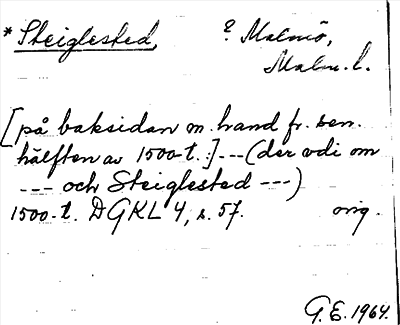 * Steiglested, ? Malmö,
Malm. l.
[på baksidan m. hand fr. sen.
hälften av 1500-t.:] --- (der vdi om
--- och Steiglested ---)
1500-t. DGKL 4, s. 57. orig.
G.E. 1964.